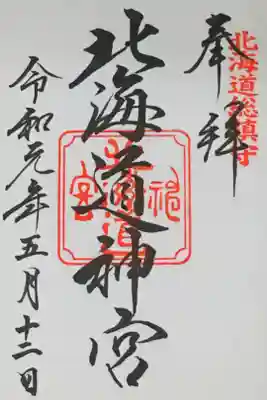 北海道総鎮守
奉拝
北海道神宮
北海道
神宮
令和元年五月十二日